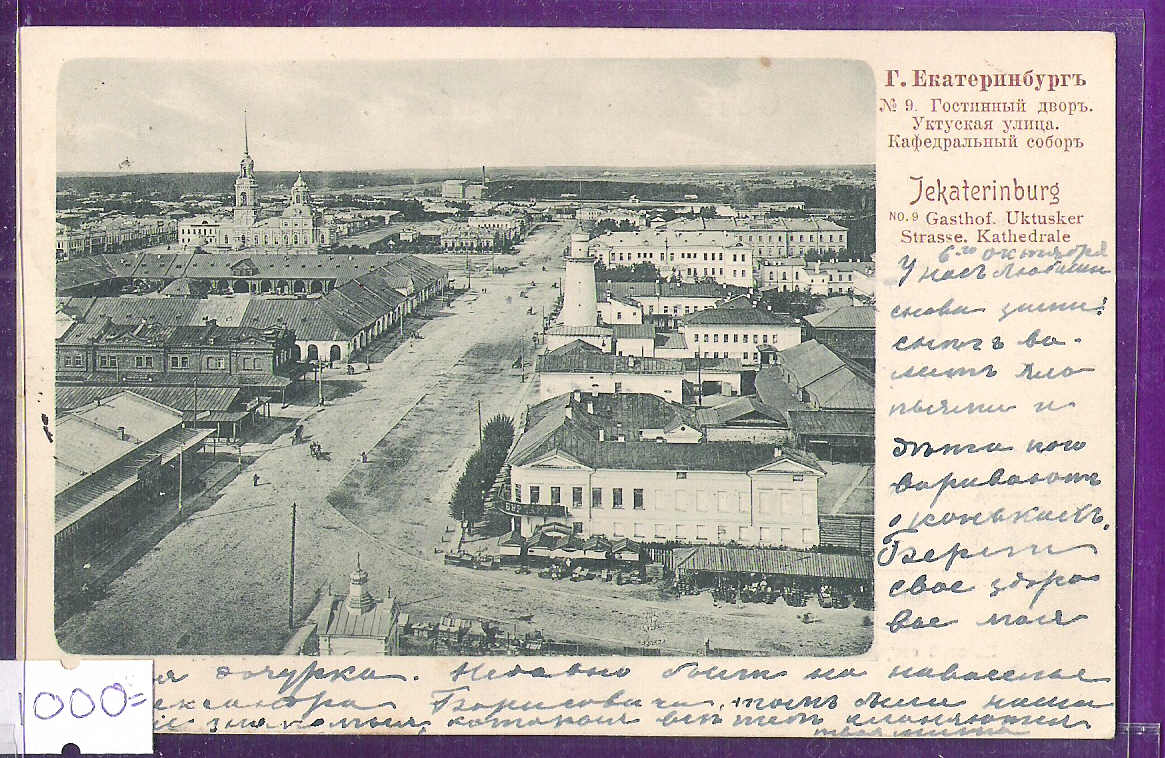 Г. Екатеринбургъ
№ 9. Гостинный дворъ.
Уктуская улица.
Кафедральный соборъ
Jekaterinburg
No. 9 Gasthof. Uktusker
Strasse. Kathedrale
6го октября
У насъ
снова зима!
снѣгъ ва-
литъ хло
пьями и
дѣти пого
вариваютъ
о конькахъ.
Береги
свое здоро
вье моя
дочурка. Недавно были на новоселье
Борисовича, тамъ были наши
знакомыя, которыя всѣ тебѣ кланяются
твоя мама
1000=